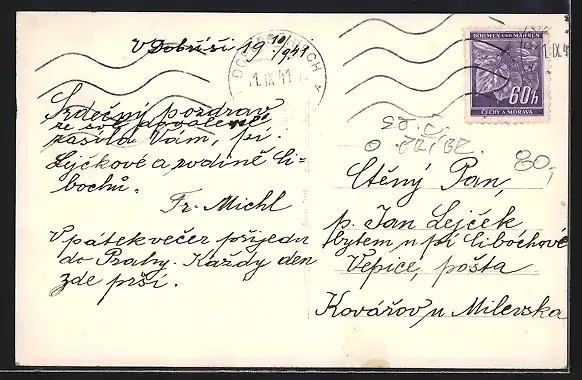 V Dobříši 19 10/9 41
Srdečný pozdrav
ze své dovolené
zasílá Vám, pí.
Lejčkové a rodině Li=
bochů.
Fr. Michl
V pátek večer přijedu
do Prahy. Každý den
zde prší.
BÖHMEN UND MÄHREN
60h
ČECHY A MORAVA
1.IX.41
80,-
Ctěný Pan,
p. Jan Lejček
bytem u pí Libochové
Vepice, pošta
Kovářov u Milevska